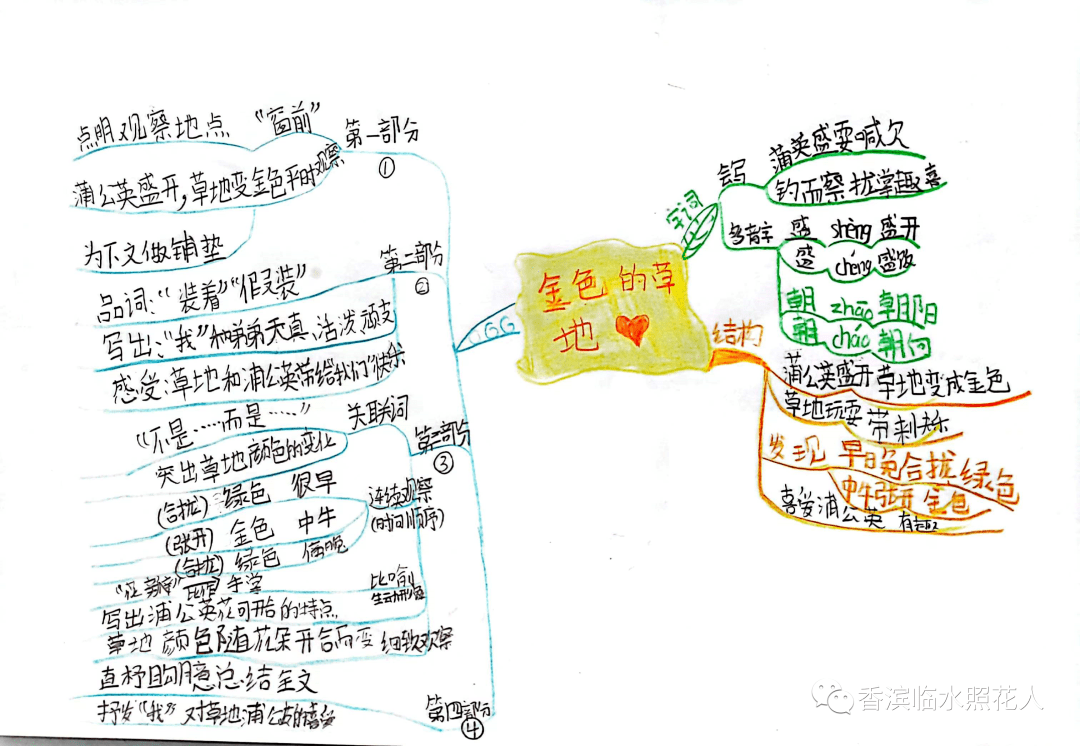 点明观察地点 “窗前”
第一部分
①
蒲公英盛开,草地变金色 平时观察
为下文做铺垫
第二部分
②
品词:“装着”“假装”
写出:“我”和弟弟天真、活泼、顽皮
感受:草地和蒲公英带给我们快乐
“不是……而是……” 关联词
第三部分
③
突出草地颜色的变化
(合拢) 绿色 很早
(张开) 金色 中午
(合拢) 绿色 傍晚
连续观察
(时间顺序)
“花瓣” 比喻 手掌
比喻
生动形象
写出蒲公英花可开合的特点
草地颜色随花朵开合而变 细致观察
直抒胸臆总结全文
第四部分
④
抒发“我”对草地蒲公英的喜爱
GG
金色的草
地
字词
会写
蒲英盛耍喊欠
钓而察拢掌趣喜
多音字
盛 shèng 盛开
盛 chéng 盛饭
朝 zhāo 朝阳
朝 cháo 朝向
结构
蒲公英盛开 草地变成金色
草地玩耍 带来快乐
发现 早晚合拢 绿色
中午张开 金色
喜爱蒲公英 有趣
香滨临水照花人